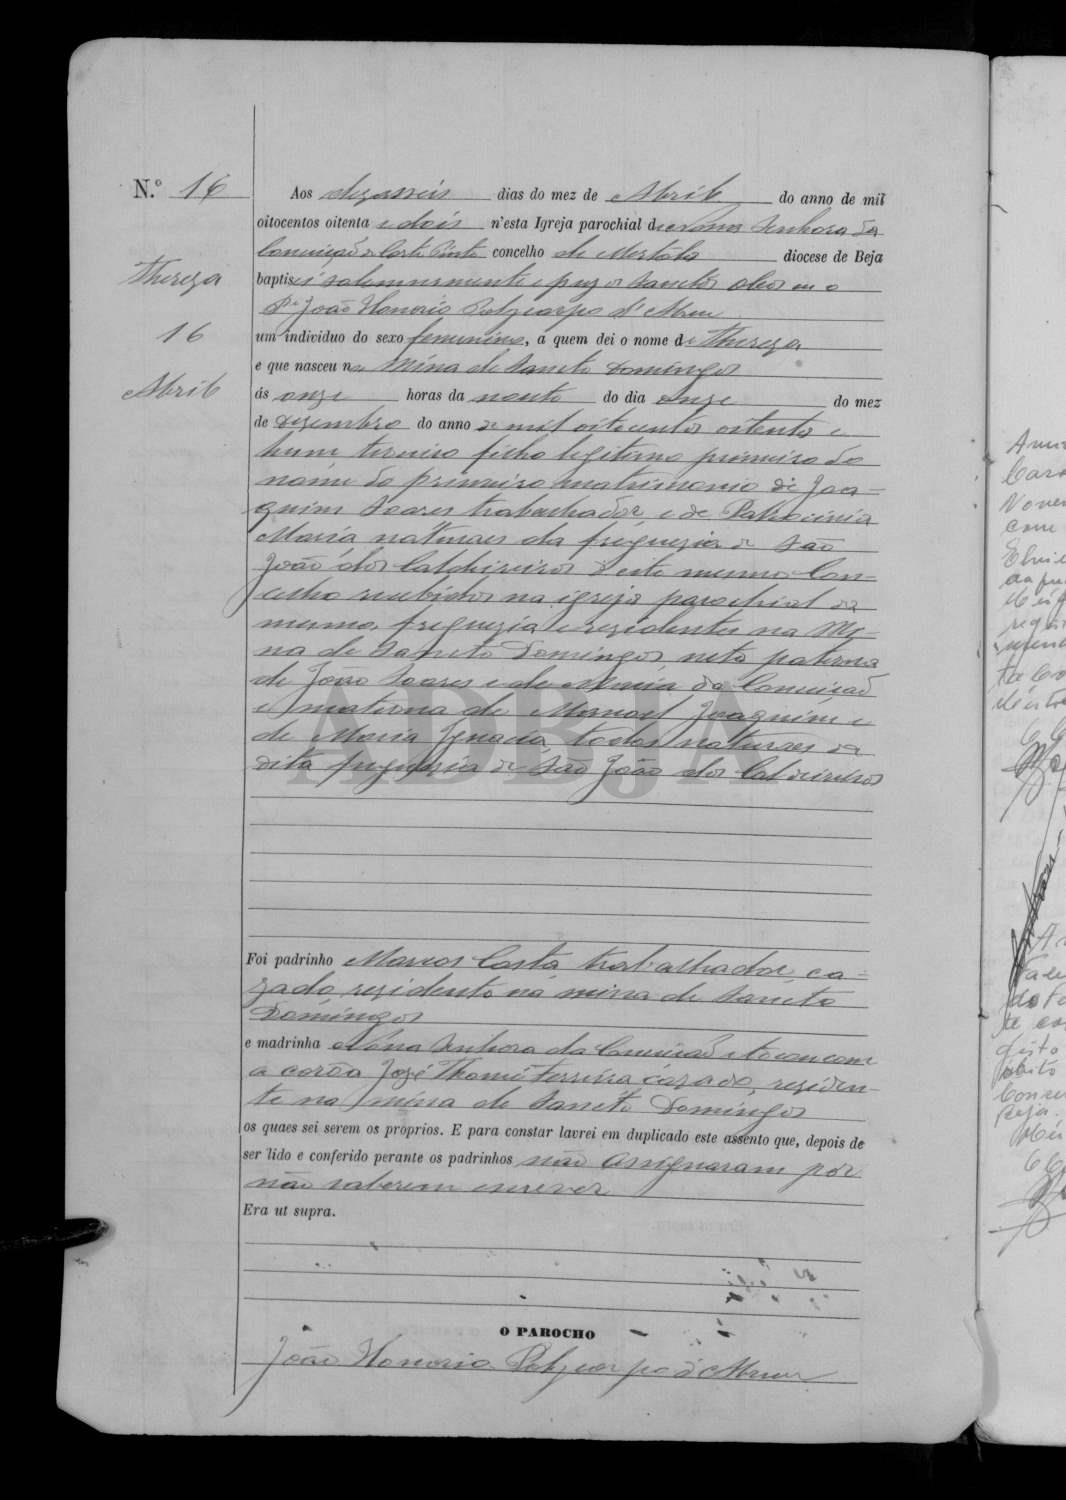 N.º 16
Thereza
16
Abril
Aos dezasseis dias do mez de Abril do anno de mil
oitocentos oitenta e dois n'esta Igreja parochial de Nossa Senhora da
Conceição de Corte Pinto concelho de Mertola diocese de Beja
baptisei solemnemente e puz os Sanctos oleos eu o
P.e João Honorio Polycarpo d'
um individuo do sexo femenino, a quem dei o nome de Thereza
e que nasceu na Mina de Sancto Domingos
ás onze horas da noute do dia onze do mez
de Dezembro do anno de mil oitocentos oitenta e
hum terceiro filho legitimo primeiro do
nome do primeiro matrimonio de Joa-
quim Soares trabalhador e de Patrocinia
Maria naturaes da freguezia de São
João dos Caldeireiros deste mesmo Con-
celho recebidos na igreja parochial da
mesma freguezia e rezidentes na Mi-
na de Sancto Domingos neta paterna
de João Soares e de Maria da Conceição
e materna de Manoel Joaquim e
de Maria Ignacia todos naturaes da
dita freguezia de São João dos Caldeireiros
ADBJA
Foi padrinho Marcos Costa trabalhador ca-
zado rezidente na mina de Sancto
Domingos
e madrinha Nossa Senhora da Conceição e tocou com
a corôa José Thomé Ferreira cazado, reziden-
te na mina de Sancto Domingos
os quaes sei serem os proprios. E para constar lavrei em duplicado este assento que, depois de
ser lido e conferido perante os padrinhos não assignaram por
não saberem escrever
Era ut supra.
O PAROCHO
João Honorio Polycarpo d'